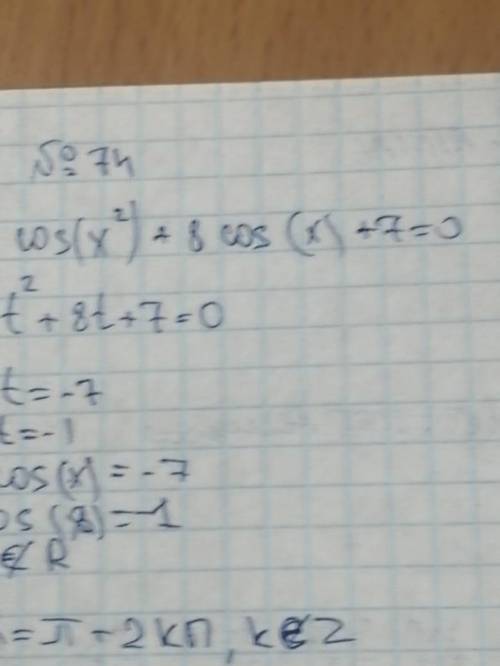 № 74
cos(x²) + 8 cos (x) + 7 = 0
t² + 8t + 7 = 0
t = -7
t = -1
cos(x) = -7
os (x) = -1
∉ R
= π - 2kπ, k∈Z